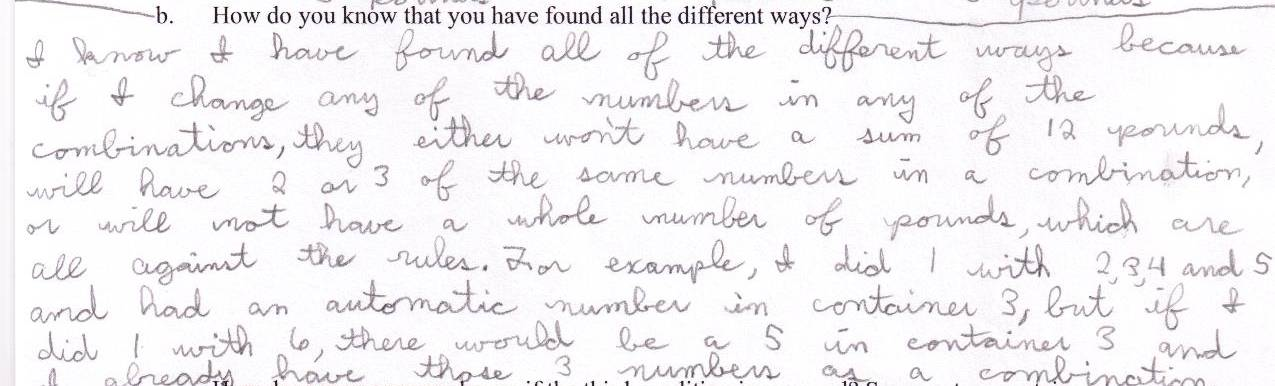 b. How do you know that you have found all the different ways?
I know I have found all of the different ways because
if I change any of the numbers in any of the
combinations, they either won't have a sum of 12 pounds,
will have 2 or 3 of the same numbers in a combination,
or will not have a whole number of pounds, which are
all against the rules. For example, I did 1 with 2,3,4 and 5
and had an automatic number in container 3, but if I
did 1 with 6, there would be a 5 in container 3 and
I already have those 3 numbers as a combination